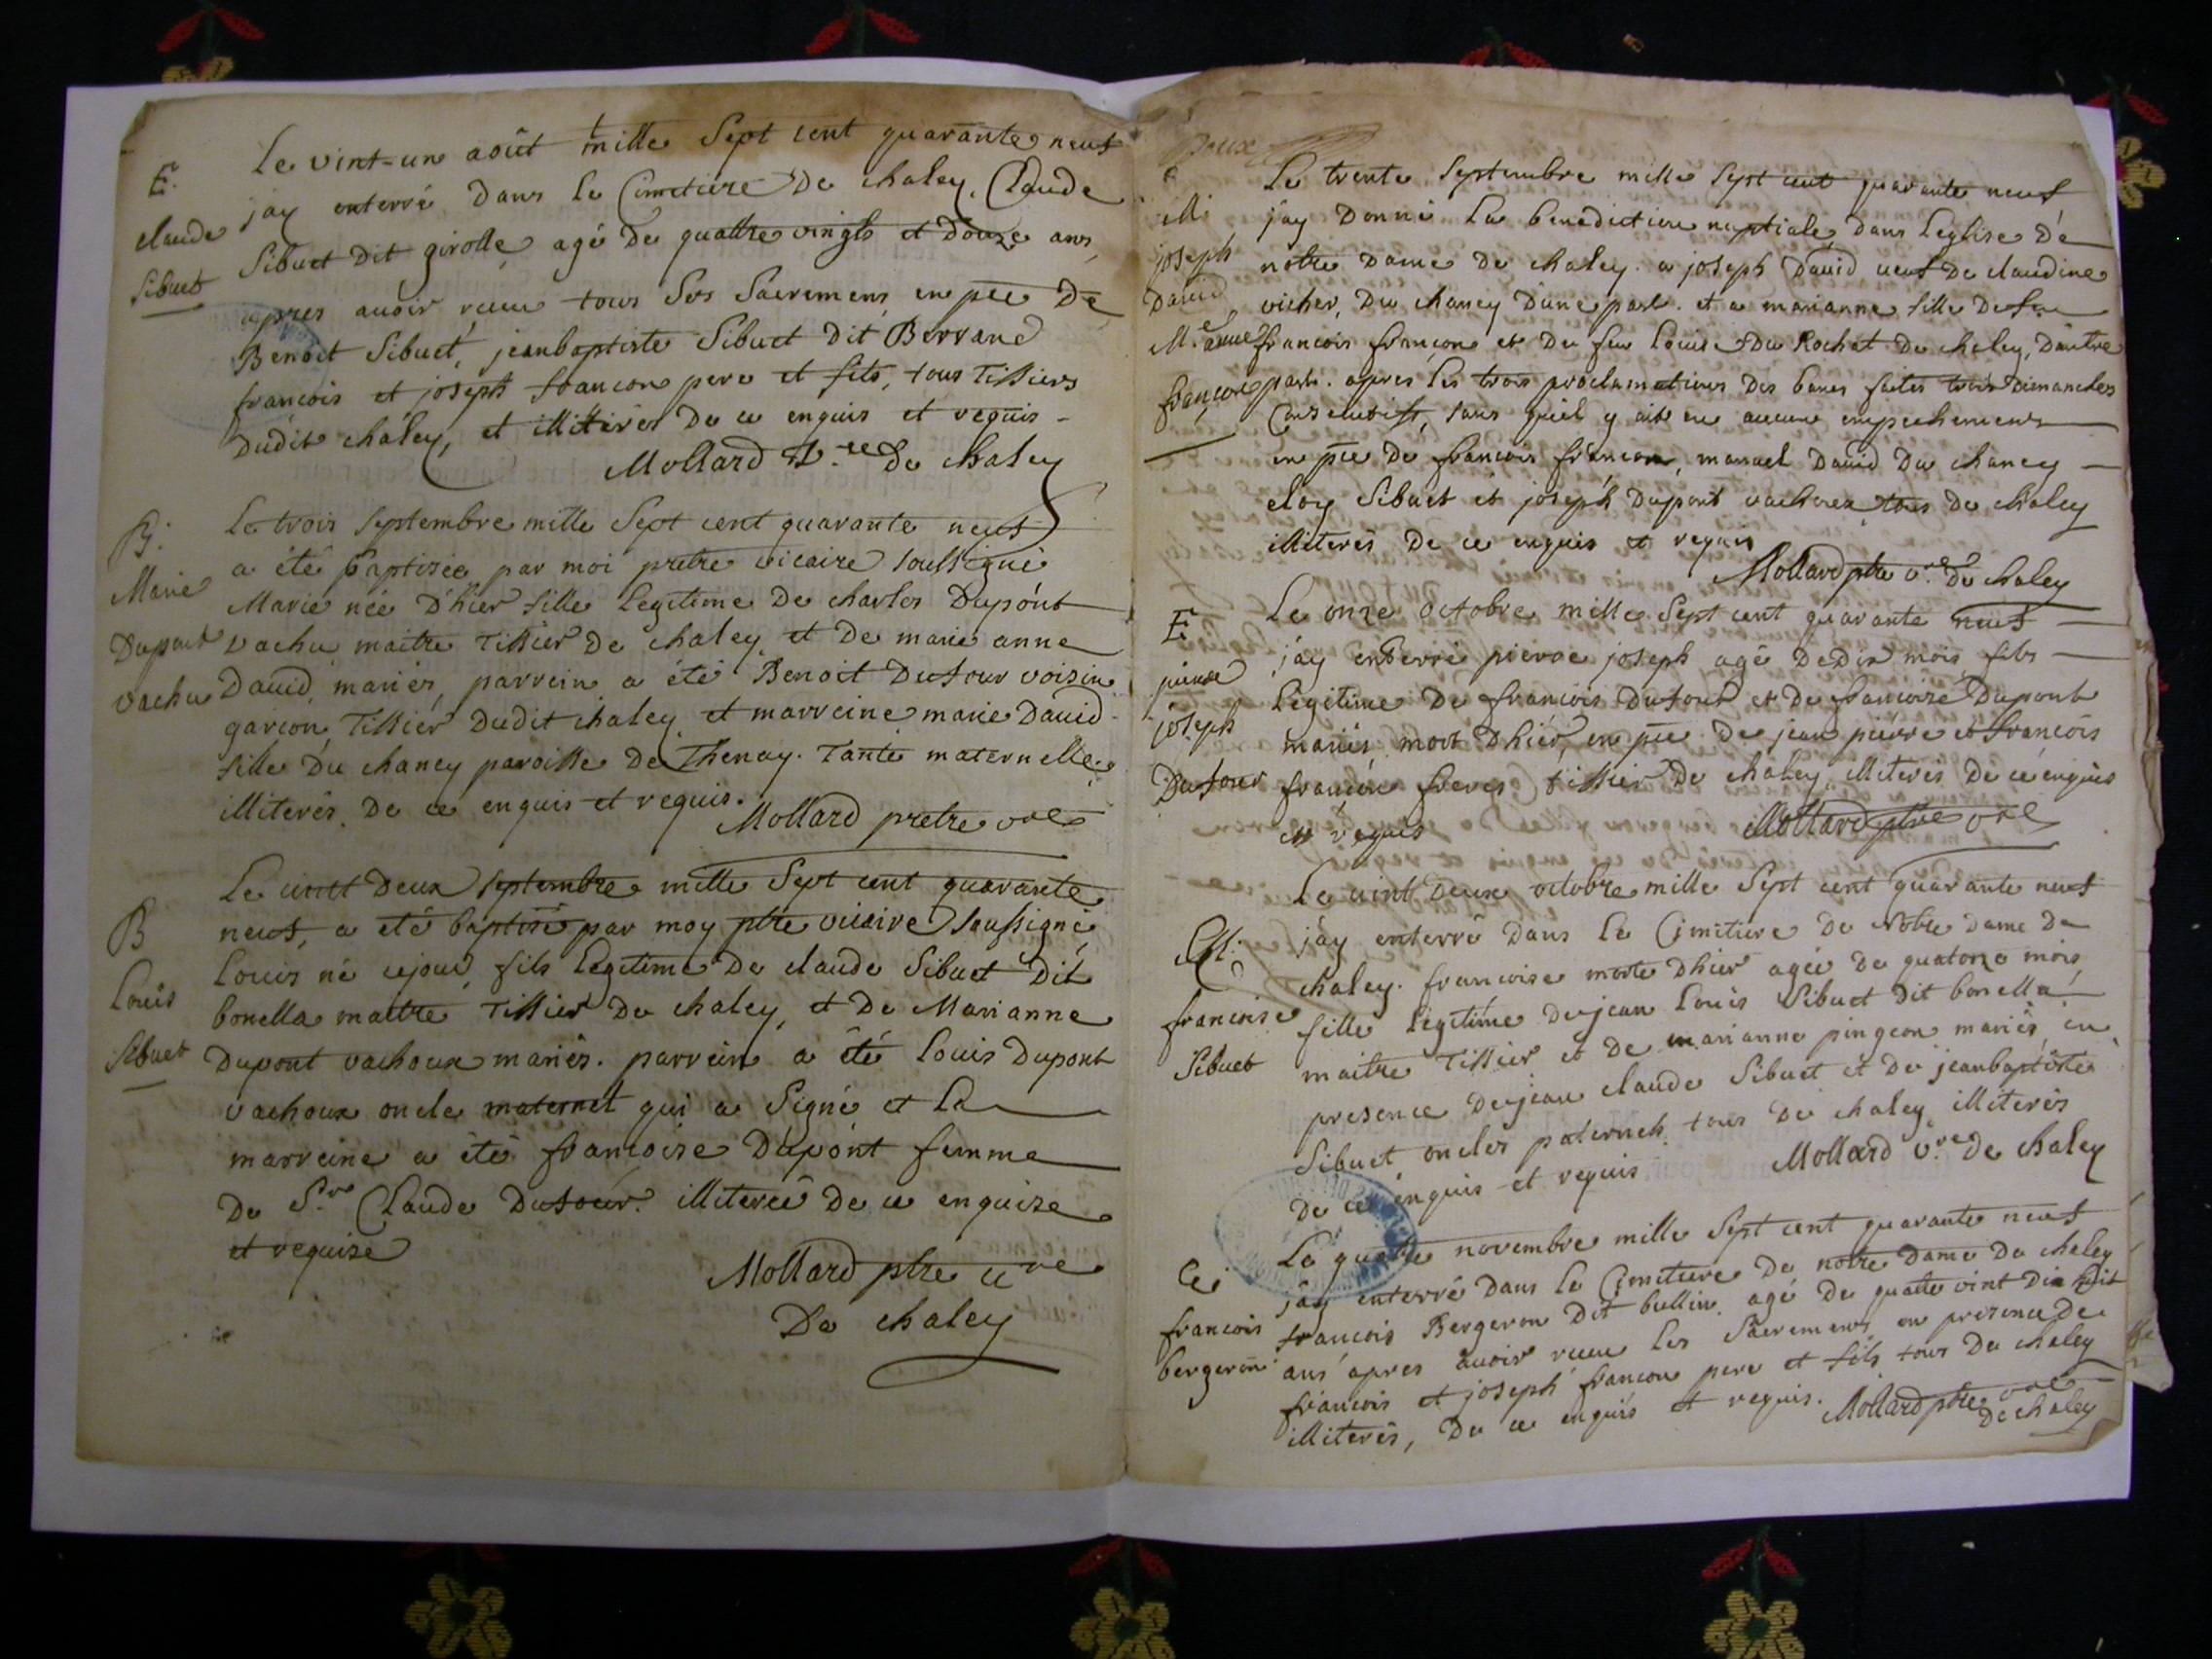 E.
claude
Sibuet
Le vint-un août mille Sept cent quarante neuf
jay enterré Dans le Cimetiére De chaley, Claude
Sibuet Dit girolle, agé De quattre vingts et Douze ans,
apres avoir reçeu tous Ses Sacremens, en pce De
Benoit Sibuet, jeanbaptiste Sibuet Dit Berrand
francois et joseph francon pere et fils, tous Tissiers
Dudit chaley, et illiterés De ce enquis et requis -
Mollard De chaley
B.
Marie
Dupont
vachu
Le trois Septembre mille Sept cent quarante neuf
a été baptisée par moi pretre vicaire soussigné
Marie née D'hier fille legitime De charles Dupont
vachu maitre Tissier De chaley, et De marie anne
David mariés, parrein a été Benoit Dufour voisin
garcon, Tissier Dudit chaley et marreine marie David
fille Du chaney paroisse De Thenay. Tante maternelle.
illiterés. De ce enquis et requis.
Mollard pretre vre
B
Louis
Sibuet
Le vint Deux Septembre mille Sept cent quarante
neuf, a eté baptisé par moy ptre vicaire Soussigné
Louis né cejour, fils Legitime De claude Sibuet Dit
bonella maitre Tissier De chaley, et De Marianne
Dupont vachoux mariés. parrein a été Louis Dupont
vachoux oncle maternel qui a Signé et La
marreine a été francoise Dupont femme
De Sr Claude Dufour. illiterée De ce enquise
et requise
Mollard ptre vre
De chaley
M.
joseph
David
M. anne
françon
Le trente Septembre mille Sept cent quarante neuf
jay Donné La benediction nuptiale, dans L'eglise De
notre Dame De chaley. a joseph David veuf De claudine
vicher, Du chaney D'une part. et a marianne fille De feu
francois françon et De feu Louise Du Rochat De chaley, D'autre
part. apres les trois proclamations Des bancs faites trois Dimanches
Consecutifs, sans qu'il y ait eu aucun empechement
en pce De francois francon, manuel David Du chaney
eloy Sibuet et joseph Dupont vachoux, tous De chaley
illiterés De ce enquis et requis
Mollard ptre vre De chaley
E
pierre
joseph
Dufour
Le onze octobre mille Sept cent quarante neuf
jay enterré pierre joseph agé De Dix mois, fils
Legitime De francois Dufour et De francoise Dupont
mariés mort D'hier, en pce De jean pierre et francois
françon freres tissier De chaley, illiterés De ce enquis
et requis
Mollard ptre vre
francoise
Sibuet
Le vint Deux octobre mille Sept cent quarante neuf
jay enterré Dans Le Cimetiere De Notre Dame De
chaley. francoise morte D'hier agée De quatorze mois
fille legitime De jean Louis Sibuet Dit bonella
maitre Tissier et De marianne pingeon mariés, en
presence De jean claude Sibuet et De jeanbaptiste
Sibuet, oncles paternels, tous De chaley illiterés
De ce enquis et requis
Mollard vre De chaley
francois
bergeron
Le quatre novembre mille Sept cent quarante neuf
jay enterré Dans le Cimetiere De notre Dame De chaley
francois Bergeron Dit bullin. agé De quatre vint Dix huit
ans apres avoir reçeu les Sacremens, en presence De
francois et joseph francon pere et fils, tous De chaley
illiterés, De ce enquis et requis.
Mollard ptre vre
De chaley